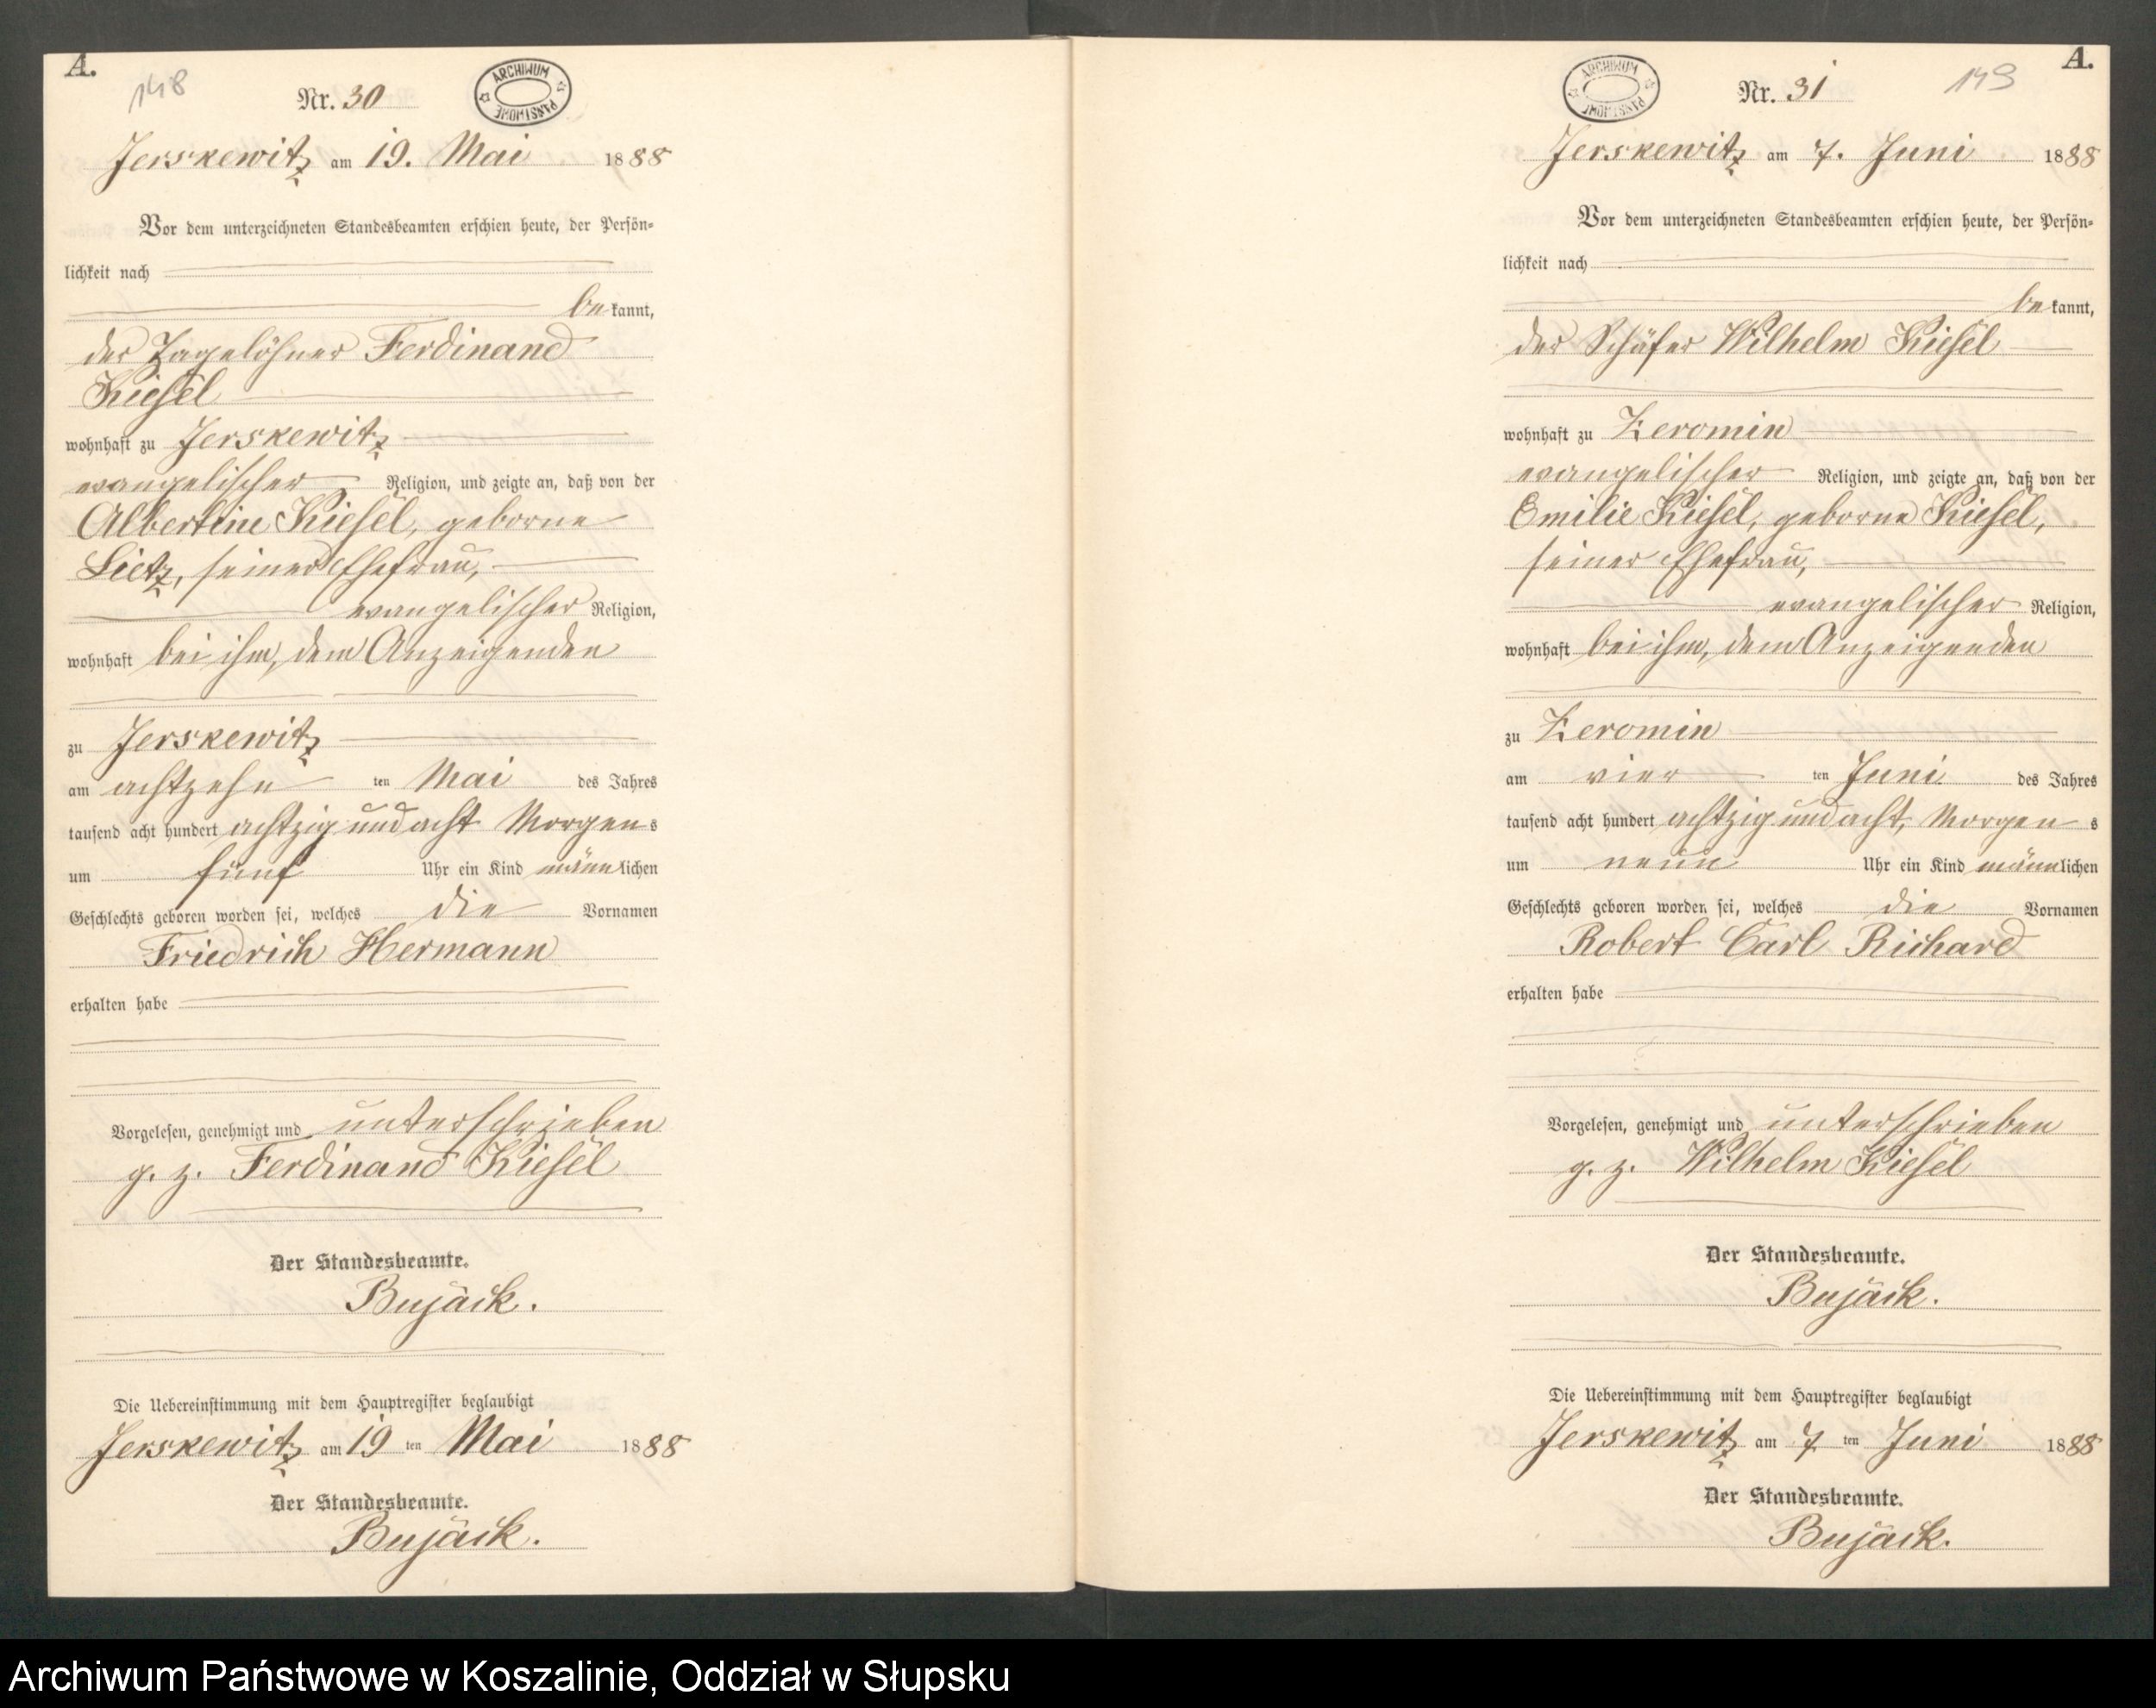 A.
148
Nr. 30
ARCHIWUM PAŃSTWOWE
Jerskewitz am 19. Mai 1888
Vor dem unterzeichneten Standesbeamten erschien heute, der Persön-
lichkeit nach
bekannt,
der Tagelöhner Ferdinand
Kiesel
wohnhaft zu Jerskewitz
evangelischer Religion, und zeigte an, daß von der
Albertine Kiesel, geborne
Lietz, seiner Ehefrau,
evangelischer Religion,
wohnhaft bei ihm, dem Anzeigenden
zu Jerskewitz
am achtzehn ten Mai des Jahres
tausend acht hundert achtzig und acht Morgens
um fünf Uhr ein Kind männlichen
Geschlechts geboren worden sei, welches die Vornamen
Friedrich Hermann
erhalten habe
Vorgelesen, genehmigt und unterschrieben
g. z. Ferdinand Kiesel
Der Standesbeamte.
Bujäck.
Die Uebereinstimmung mit dem Hauptregister beglaubigt
Jerskewitz am 19 ten Mai 1888
Der Standesbeamte.
Bujäck.
A.
149
Nr. 31
ARCHIWUM PAŃSTWOWE
Jerskewitz am 7. Juni 1888
Vor dem unterzeichneten Standesbeamten erschien heute, der Persön-
lichkeit nach
bekannt,
der Schäfer Wilhelm Kiesel
wohnhaft zu Zeromin
evangelischer Religion, und zeigte an, daß von der
Emilie Kiesel, geborne Kiesel,
seiner Ehefrau,
evangelischer Religion,
wohnhaft bei ihm, dem Anzeigenden
zu Zeromin
am vier ten Juni des Jahres
tausend acht hundert achtzig und acht, Morgens
um neun Uhr ein Kind männlichen
Geschlechts geboren worden sei, welches die Vornamen
Robert Carl Richard
erhalten habe
Vorgelesen, genehmigt und unterschrieben
g. z. Wilhelm Kiesel
Der Standesbeamte.
Bujäck.
Die Uebereinstimmung mit dem Hauptregister beglaubigt
Jerskewitz am 7 ten Juni 1888
Der Standesbeamte.
Bujäck.
Archiwum Państwowe w Koszalinie, Oddział w Słupsku